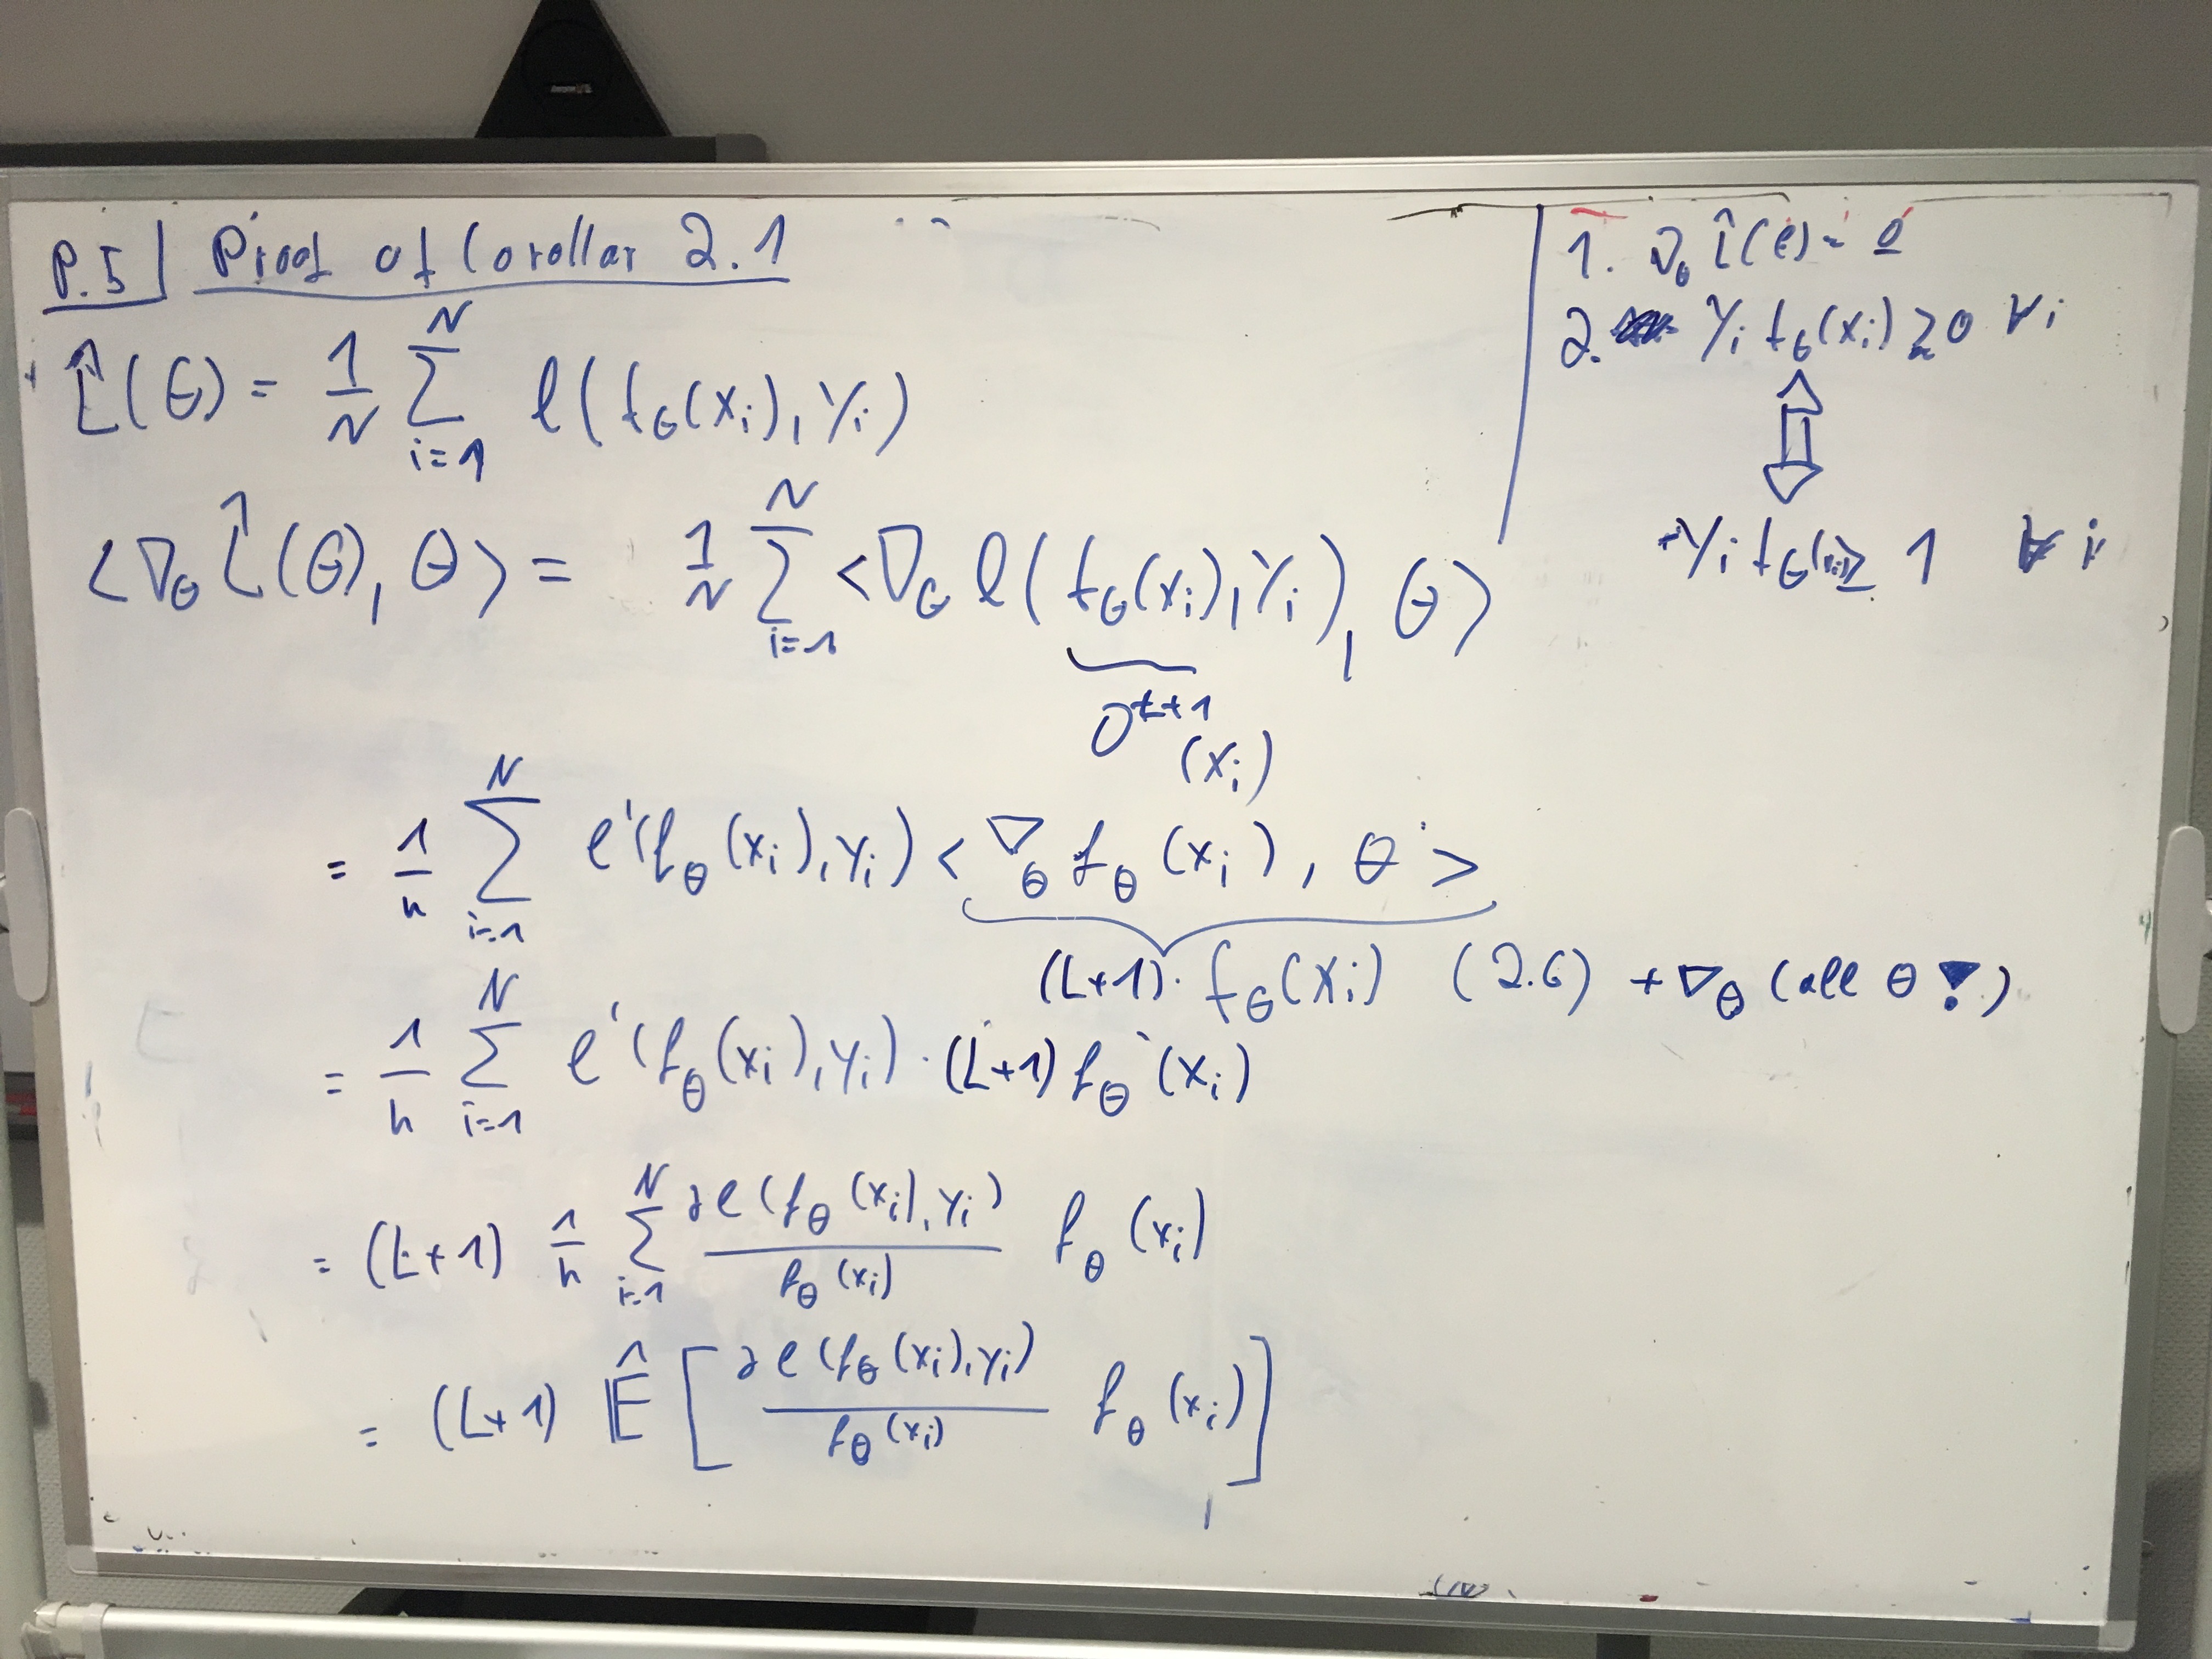 P.5 | Proof of Corollar 2.1
L̂(θ) = 1/N ∑_{i=1}^{N} ℓ(f_θ(x_i), y_i)
<∇_θ L̂(θ), θ> = 1/N ∑_{i=1}^{N} <∇_θ ℓ(f_θ(x_i), y_i), θ>
O^{L+1}(x_i)
= 1/n ∑_{i=1}^{N} ℓ'(f_θ(x_i), y_i) <∇_θ f_θ(x_i), θ>
(L+1)· f_θ(x_i) (2.6) + ∇_θ (all θ !)
= 1/n ∑_{i=1}^{N} ℓ'(f_θ(x_i), y_i) · (L+1) f_θ(x_i)
= (L+1) 1/n ∑_{i=1}^{N} ∂ℓ(f_θ(x_i), y_i) / f_θ(x_i) f_θ(x_i)
= (L+1) 𝔼̂ [ ∂ℓ(f_θ(x_i), y_i) / f_θ(x_i) f_θ(x_i) ]
1. ∇_θ L̂(θ) = 0
2. y_i f_θ(x_i) ≥ 0 ∀i
⇕
y_i f_θ(x_i) ≥ 1 ∀ i